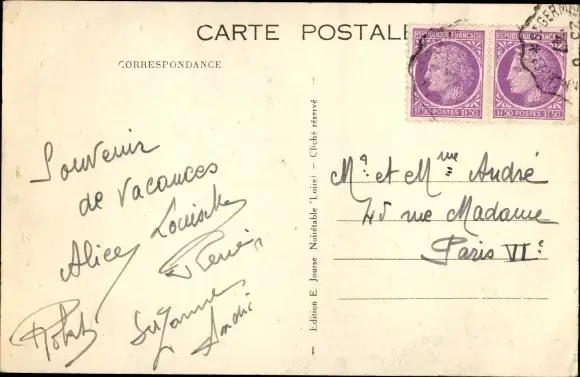 CARTE POSTALE
CORRESPONDANCE
REPUBLIQUE FRANÇAISE
1F50 POSTES 1F50
REPUBLIQUE FRANÇAISE
1F50 POSTES 1F50
Souvenir
de vacances
Alice
Robert
Suzanne
André
Edition E. Jousse Noirétable (Loire) — Cliché réservé
Mr et Mme André
45 rue Madame
Paris VIe